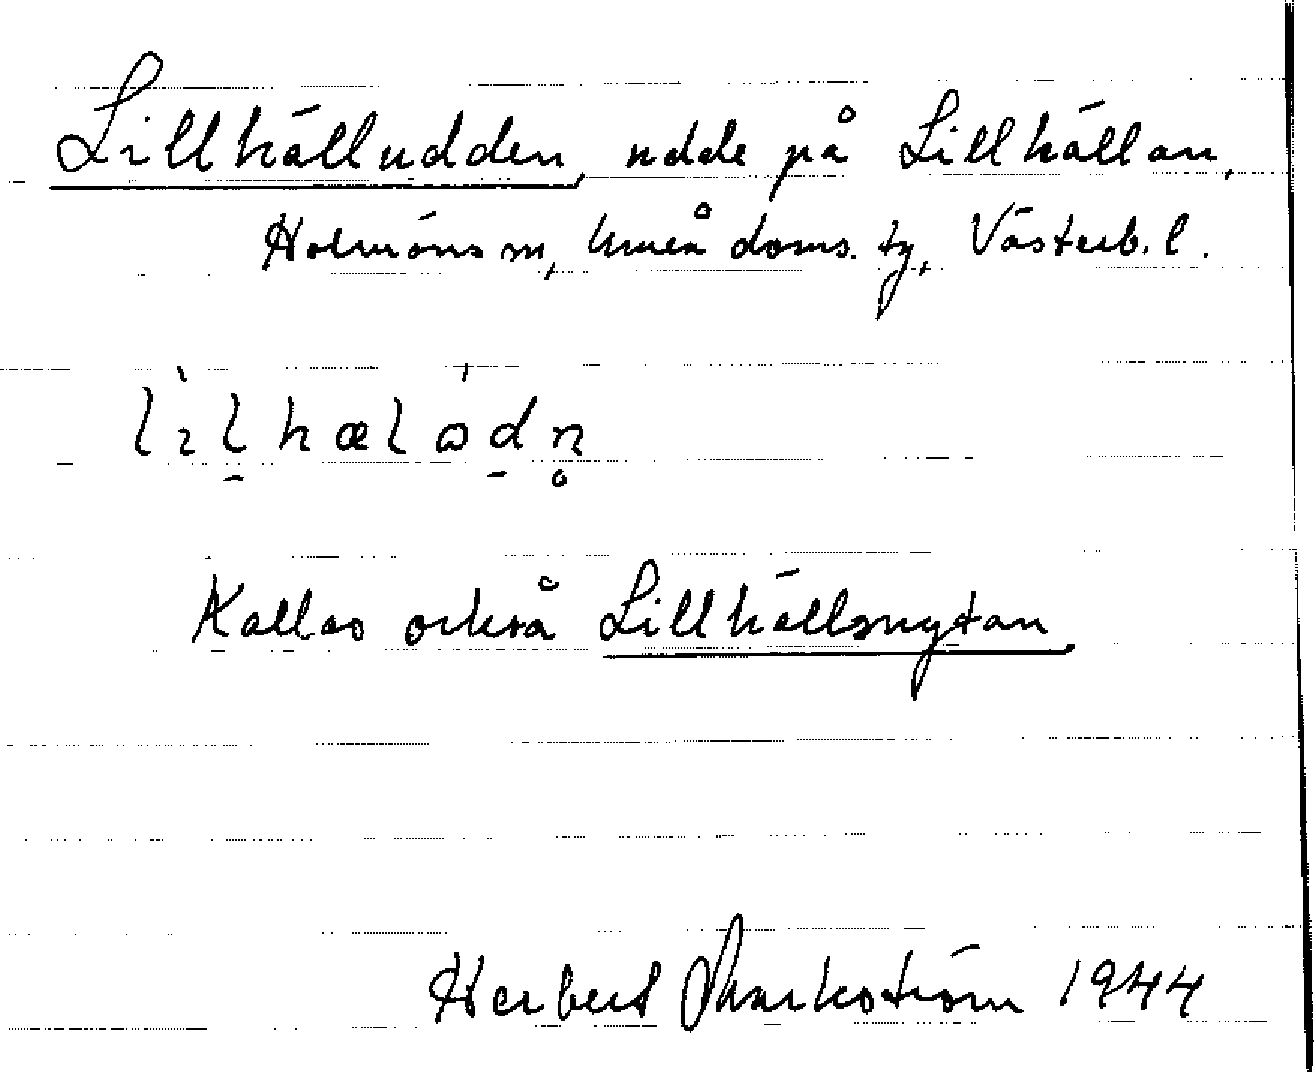 Lillhälludden, udde på Lillhällan,
Holmöns sn, Umeå doms. tg, Västerb. l.
Kallas också Lillhällsnytan
Herbert Markström 1944